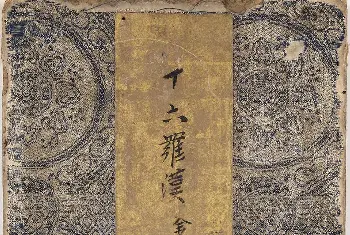 十六羅漢